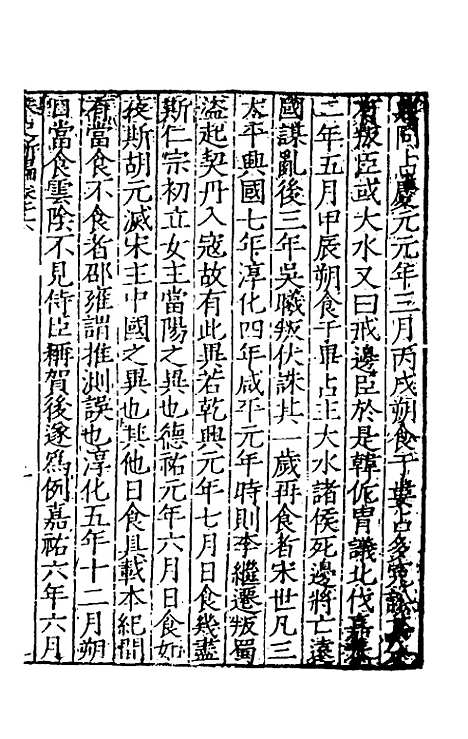 慶元元年三月丙戌朔食于婁占多冤訟
有叛臣或大水又曰戒邊臣於是韓侂胄議北伐嘉泰
二年五月甲辰朔食于畢占主大水諸侯死邊將亡遠
國謀亂後三年吳曦叛伏誅其一歲再食者宋世凡三
太平興國七年淳化四年咸平元年時則李繼遷叛蜀
盜起契丹入寇故有此異若乾興元年七月日食幾盡
斯仁宗初立女主當陽之異也德祐元年六月日食如
夜斯胡元滅宋主中國之異也其他日食具載本紀間
有當食不食者邵雍謂推測誤也淳化五年十二月朔
當食雲陰不見侍臣稱賀後遂爲例嘉祐六年六月
宋史新編卷